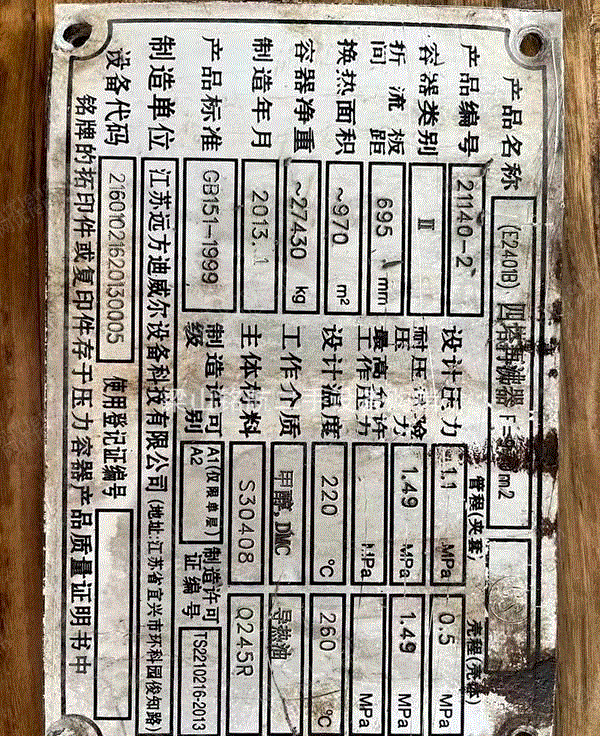 产品名称 (E2401B) 四塔再沸器 F=970m2
管程(夹套) 壳程(壳体)
产品编号 21140-2 设计压力 1.1 MPa 0.5 MPa
容器类别 Ⅱ 耐压试验压力 1.49 MPa 1.49 MPa
折流板间距 695 mm 最高允许工作压力 MPa MPa
换热面积 ~970 m² 设计温度 220 ℃ 260 ℃
容器净重 ~27430 kg 工作介质 甲醇,DMC 导热油
制造年月 2013.1 主体材料 S30408 Q245R
产品标准 GB151-1999 制造许可级别 A1(仅限单层) A2 制造许可证编号 TS2210216-2013
制造单位 江苏远方迪威尔设备科技有限公司 (地址:江苏省宜兴市环科园俊知路)
设备代码 21601021620130005 使用登记证编号
铭牌的拓印件或复印件存于压力容器产品质量证明书中